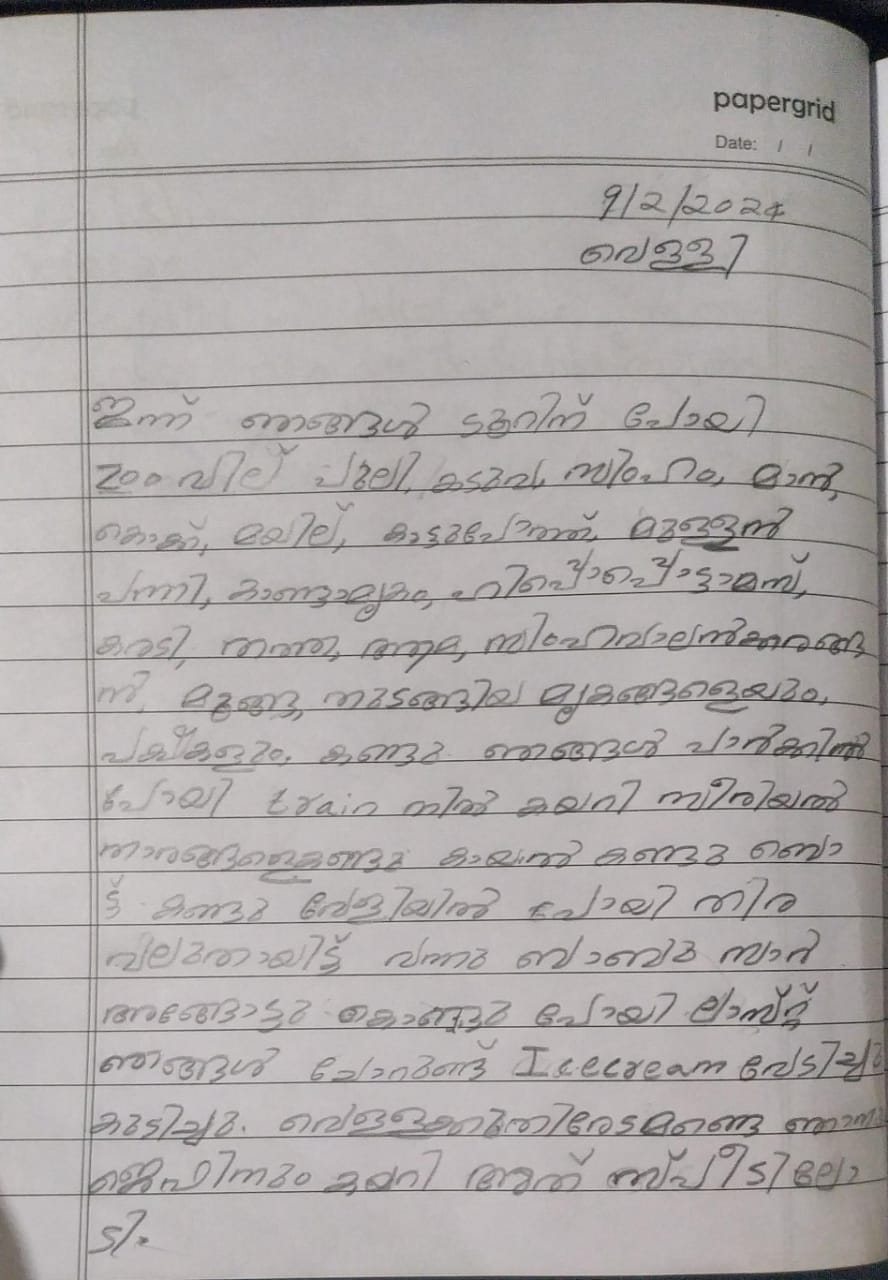 papergrid
Date: / /
9/2/2024
വെള്ളി
ഇന്ന് ഞങ്ങൾ ടൂറിന് പോയി
zoo വില് പുലി, കടുവ, സിംഹം, മാൻ,
കൊക്ക്, മയില്, കാട്ടുപോത്ത്, മുള്ളൻ
പന്നി, കാണ്ടാമൃകം, ഹിപ്പൊപ്പൊട്ടാമസ്,
കരടി, തത്ത, ആമ, സിംഹവാലൻകുരങ്ങ
ൻ, മൂങ്ങ, തുടങ്ങിയ മൃകങ്ങളെയും,
പക്ഷികളും, കണ്ടു ഞങ്ങൾ പാർക്കിൽ
പോയി train നിൽ കയറി സീരിയൽ
താരങ്ങളെകണ്ടു കായൽ കണ്ടു ബൊ
ട്ട് കണ്ടു വേളിയിൽ പോയി തിര
വലുതായിട്ട് വന്നു ബാബു സാർ
അങ്ങോട്ടു കൊണ്ടു പോയി ലാസ്റ്റ്
ഞങ്ങൾ ചോറുണ്ട് Icecream മേടിച്ചു
കുടിച്ചു. ഞാനു
ജെഫിനും കയറി അത് സ്പീടിലോ
ടി.